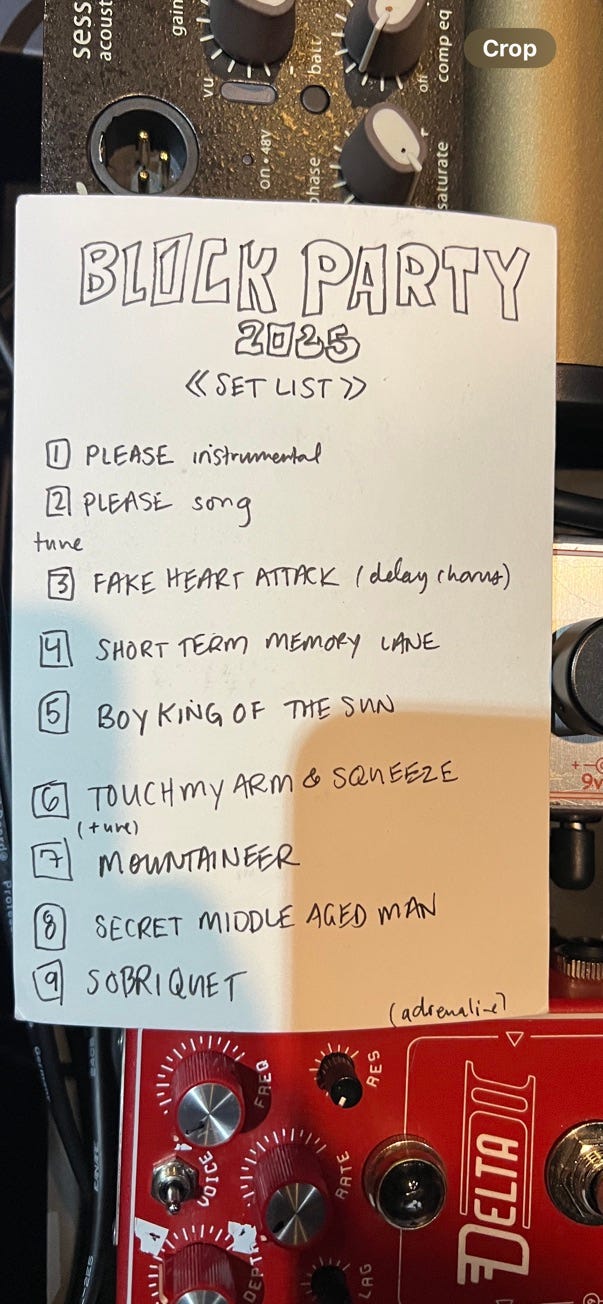 Crop
sess
acoust
gain
vu
on • 48V
ball
phase
off
comp eq
saturate
BLOCK PARTY
2025
<< SET LIST >>
1 PLEASE instrumental
2 PLEASE song
tune
3 FAKE HEART ATTACK (delay chorus)
4 SHORT TERM MEMORY LANE
5 BOY KING OF THE SUN
6 TOUCH MY ARM & SQUEEZE
(tune)
7 MOUNTAINEER
8 SECRET MIDDLE AGED MAN
9 SOBRIQUET
(adrenaline)
9v
FREQ
RES
VOICE
RATE
DEPTH
LAG
DELTA II